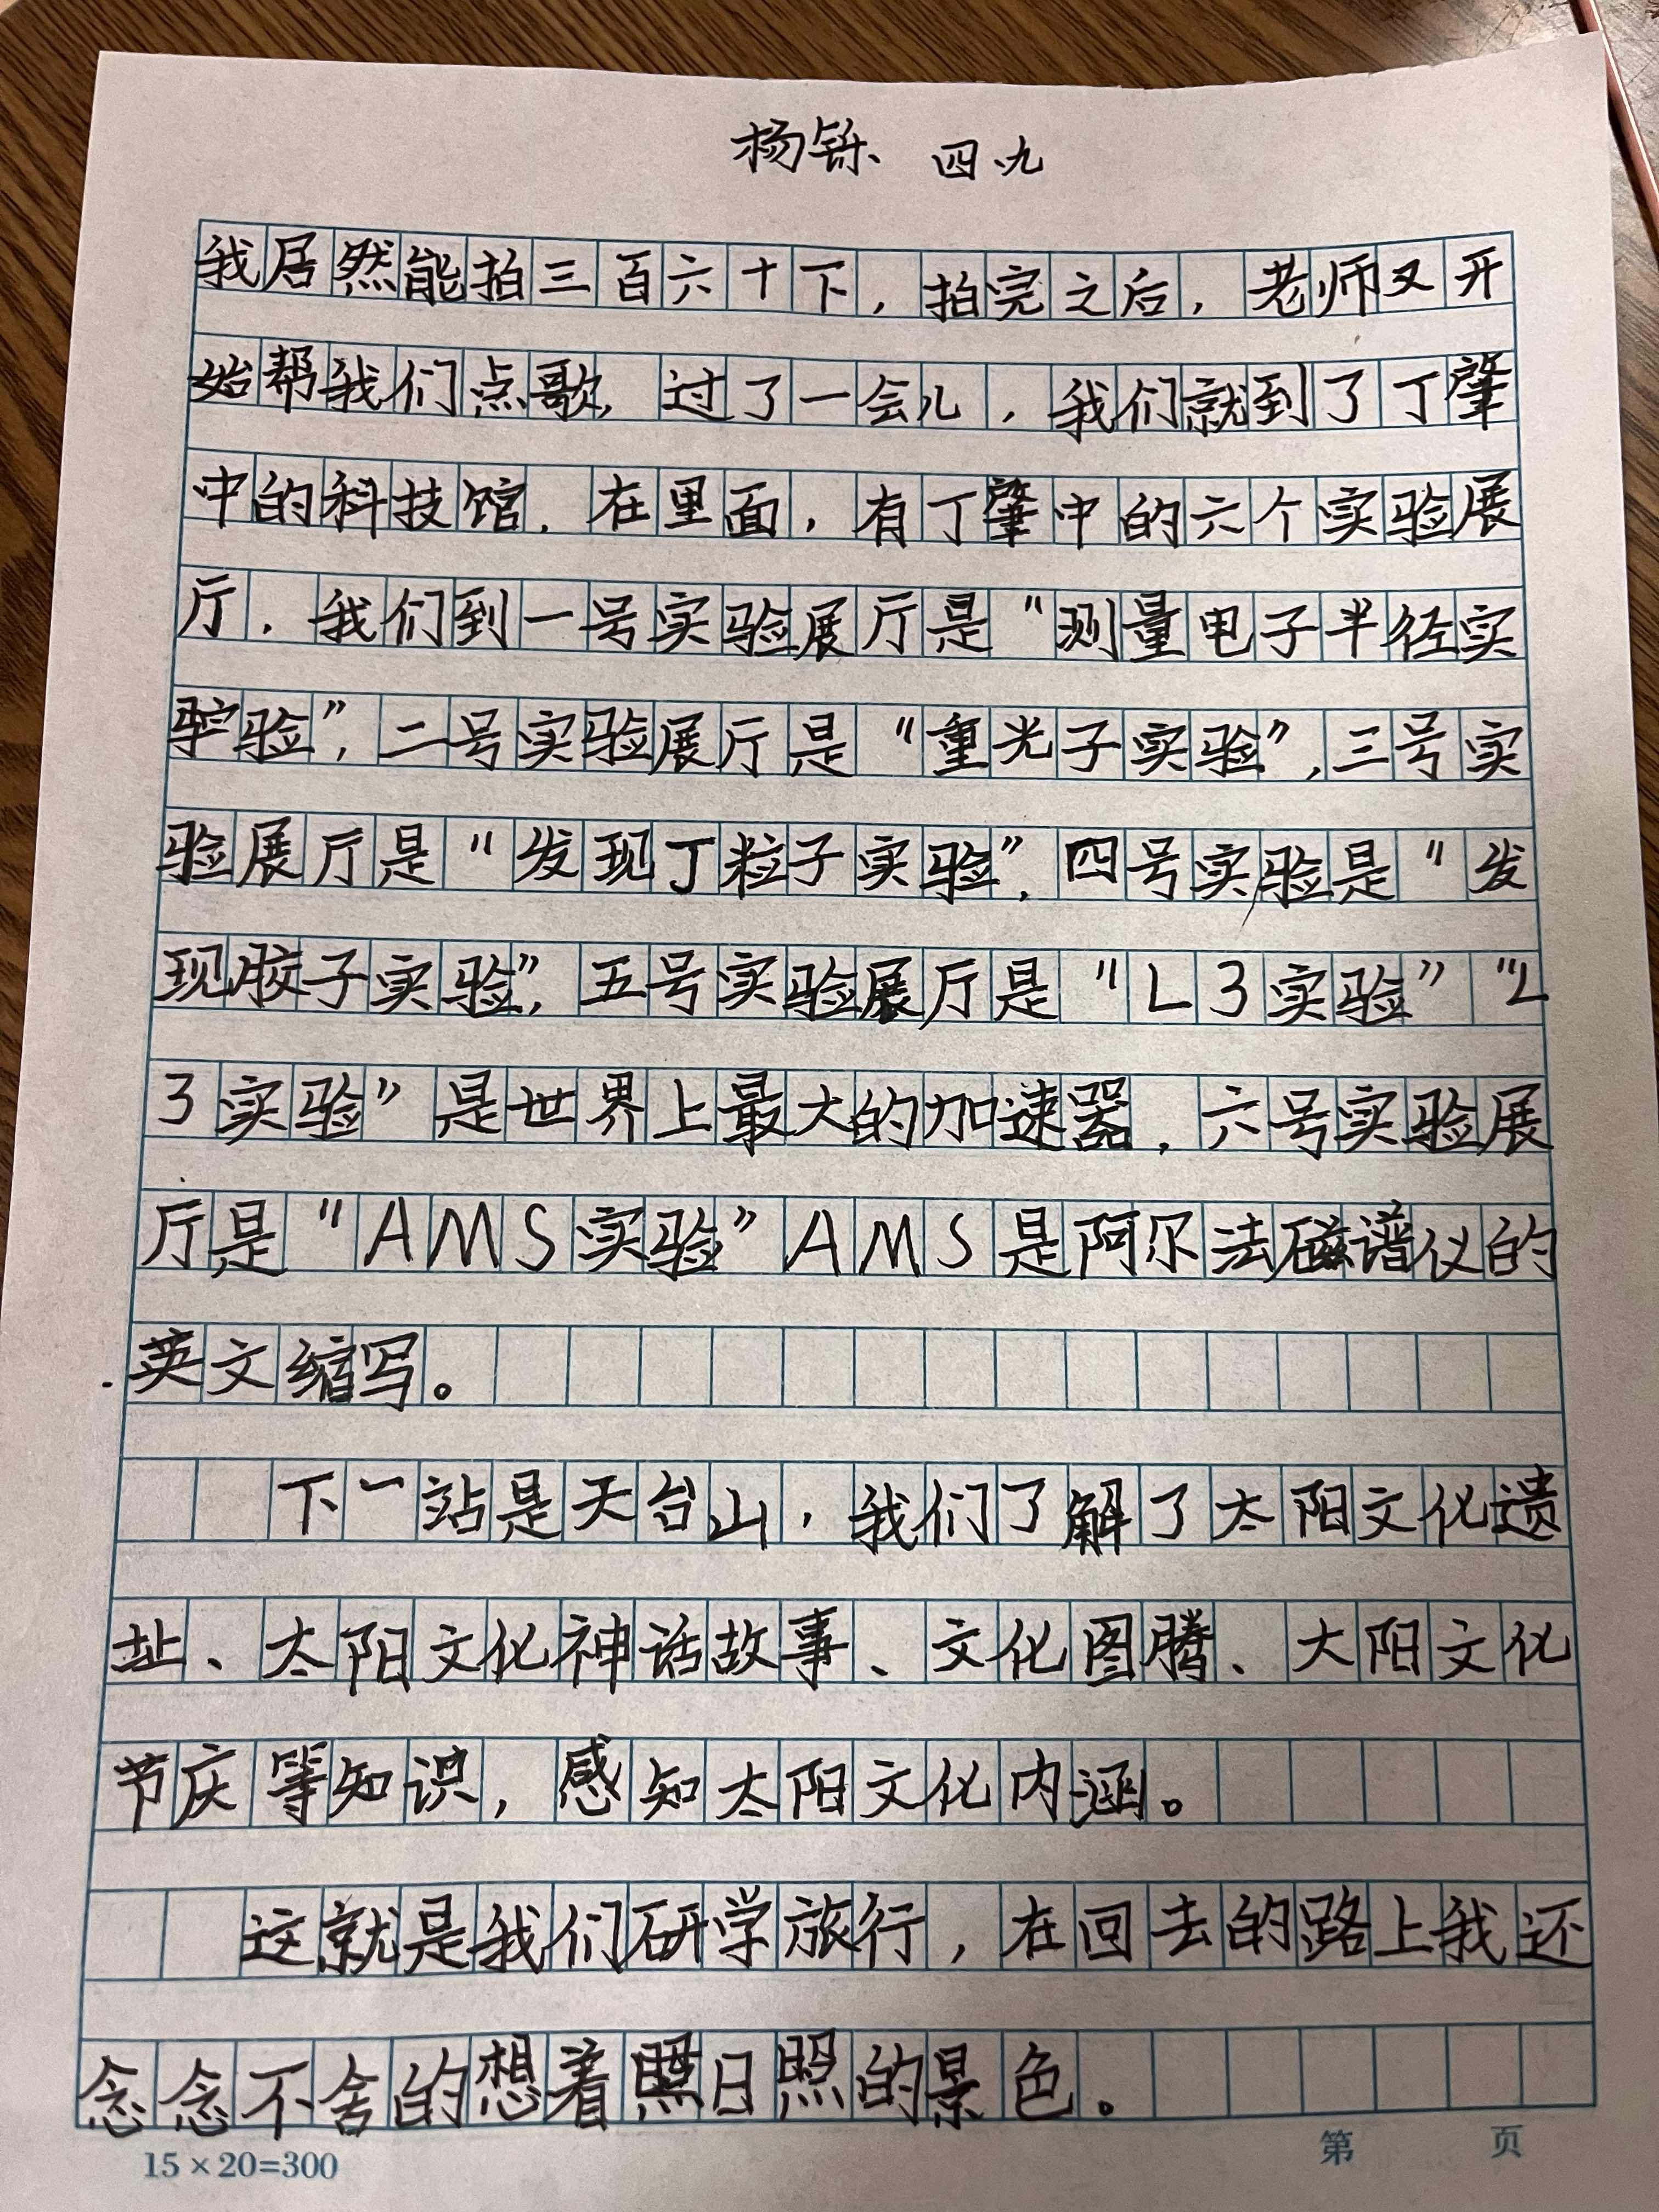 杨铄 四.九
我居然能拍三百六十下，拍完之后，老师又开
始帮我们点歌，过了一会儿，我们就到了丁肇
中的科技馆，在里面，有丁肇中的六个实验展
厅，我们到一号实验展厅是“测量电子半径实
验”，二号实验展厅是“重光子实验”，三号实
验展厅是“发现丁粒子实验”，四号实验是“发
现胶子实验”，五号实验展厅是“L3实验”“L
3实验”是世界上最大的加速器，六号实验展
厅是“AMS实验”AMS是阿尔法磁谱仪的
英文缩写。
下一站是天台山，我们了解了太阳文化遗
址、太阳文化神话故事、文化图腾、大阳文化
节庆等知识，感知太阳文化内涵。
这就是我们研学旅行，在回去的路上我还
念念不舍的想着日照的景色。
15×20=300 第 页